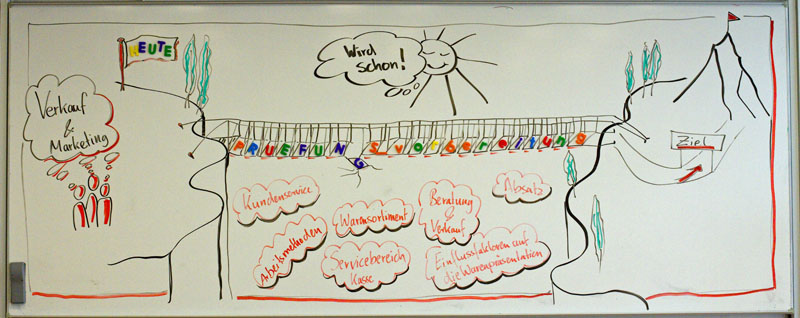 HEUTE
Wird
schon!
Verkauf
&
Marketing
Ziel
PRUEFUNGSvorbereitung
Kundenservice
Warensortiment
Beratung
&
Verkauf
Absatz
Arbeitsmethoden
Servicebereich
Kasse
Einflussfaktoren auf
die Warenpräsentation